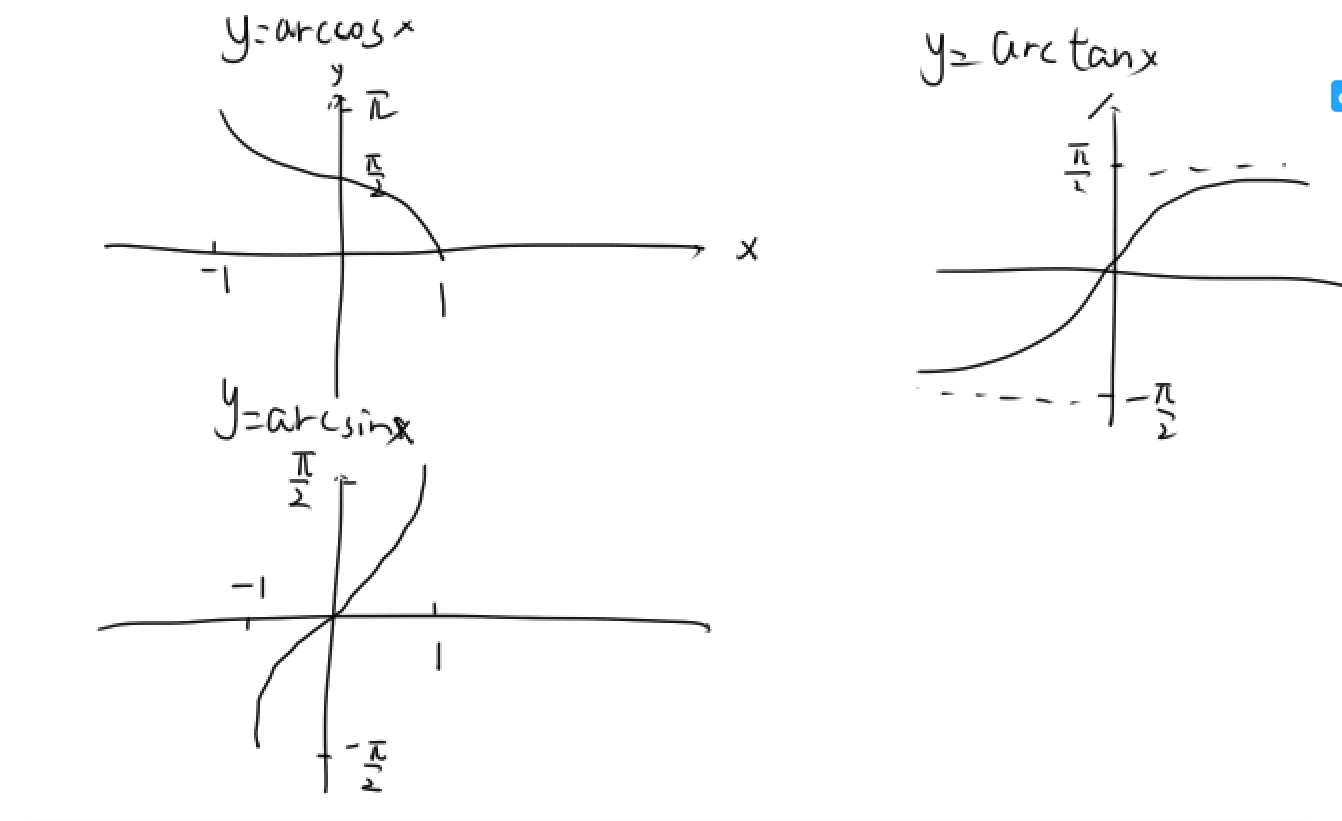 y=arccosx
y
π
π/2
x
-1
1
y=arctanx
π/2
-π/2
y=arcsinx
π/2
-1
1
-π/2